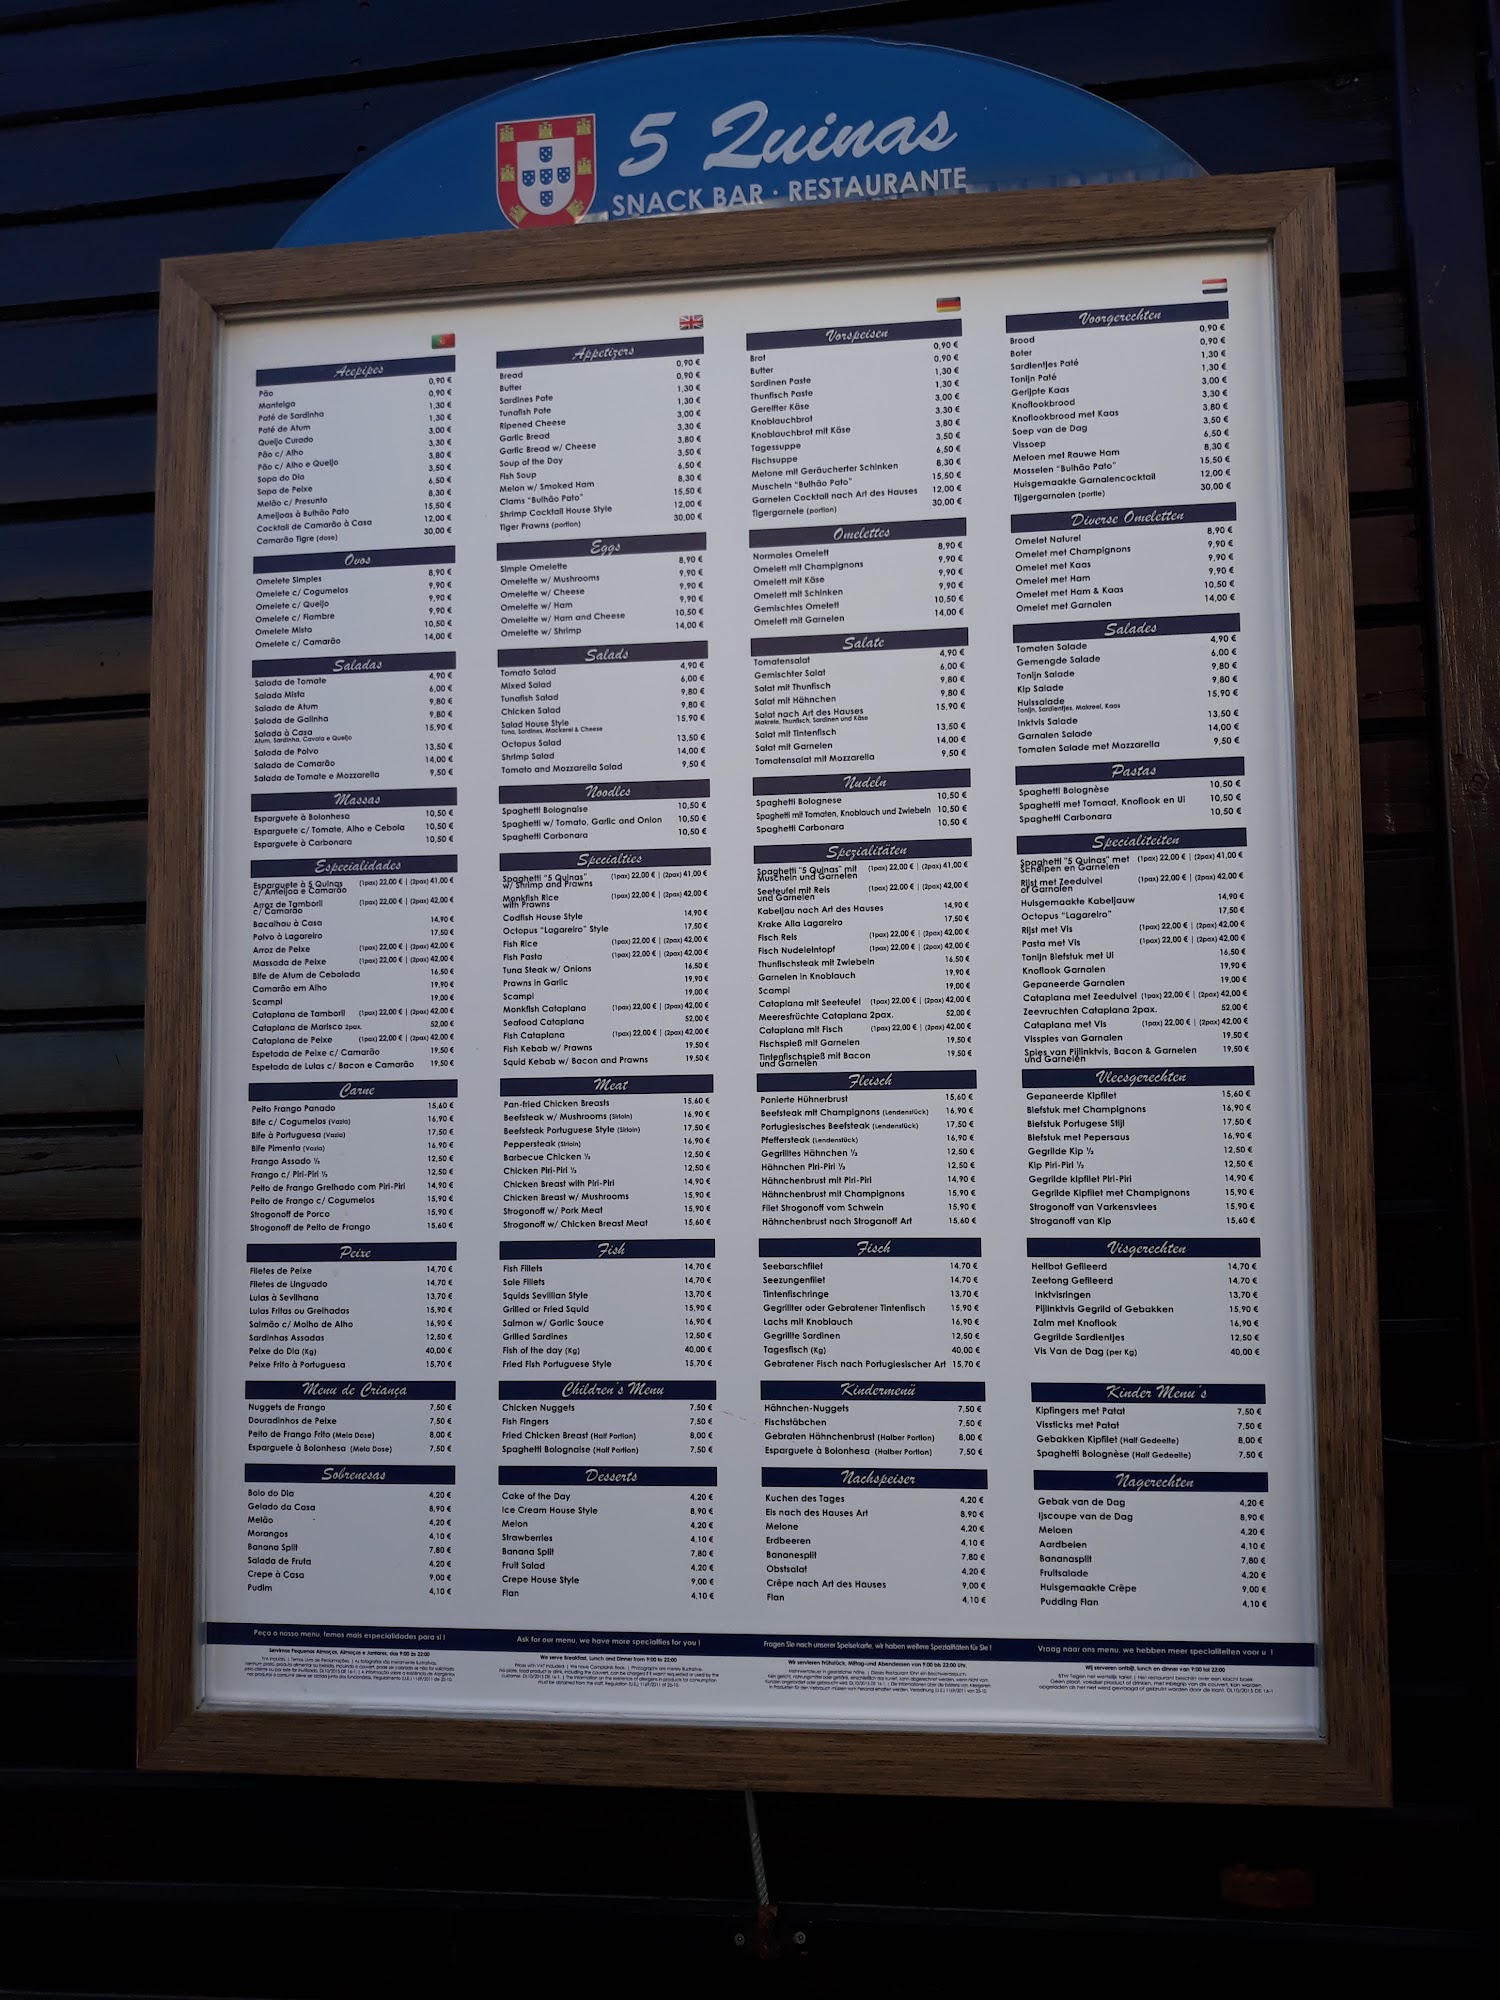 5 Quinas
SNACK BAR · RESTAURANTE
Acepipes
Pão 0,90 €
Manteiga 0,90 €
Paté de Sardinha 1,30 €
Paté de Atum 1,30 €
Queijo Curado 3,00 €
Pão c/ Alho 3,30 €
Pão c/ Alho e Queijo 3,80 €
Sopa do Dia 3,50 €
Sopa de Peixe 6,50 €
Melão c/ Presunto 8,30 €
Ameijoas à Bulhão Pato 15,50 €
Cocktail de Camarão à Casa 12,00 €
Camarão Tigre (dose) 30,00 €
Ovos
Omelete Simples 8,90 €
Omelete c/ Cogumelos 9,90 €
Omelete c/ Queijo 9,90 €
Omelete c/ Fiambre 9,90 €
Omelete Mista 10,50 €
Omelete c/ Camarão 14,00 €
Saladas
Salada de Tomate 4,90 €
Salada Mista 6,00 €
Salada de Atum 9,80 €
Salada de Galinha 9,80 €
Salada à Casa 15,90 €
Atum, Sardinha, Cavala e Queijo
Salada de Polvo 13,50 €
Salada de Camarão 14,00 €
Salada de Tomate e Mozzarella 9,50 €
Massas
Esparguete à Bolonhesa 10,50 €
Esparguete c/ Tomate, Alho e Cebola 10,50 €
Esparguete à Carbonara 10,50 €
Especialidades
Esparguete à 5 Quinas (1pax) 22,00 € | (2pax) 41,00 €
c/ Ameijoa e Camarão
Arroz de Tamboril (1pax) 22,00 € | (2pax) 42,00 €
c/ Camarão
Bacalhau à Casa 14,90 €
Polvo à Lagareiro 17,50 €
Arroz de Peixe (1pax) 22,00 € | (2pax) 42,00 €
Massada de Peixe (1pax) 22,00 € | (2pax) 42,00 €
Bife de Atum de Cebolada 16,50 €
Camarão em Alho 19,90 €
Scampi 19,00 €
Cataplana de Tamboril (1pax) 22,00 € | (2pax) 42,00 €
Cataplana de Marisco 2pax. 52,00 €
Cataplana de Peixe (1pax) 22,00 € | (2pax) 42,00 €
Espetada de Peixe c/ Camarão 19,50 €
Espetada de Lulas c/ Bacon e Camarão 19,50 €
Carne
Peito Frango Panado 15,60 €
Bife c/ Cogumelos (Vazia) 16,90 €
Bife à Portuguesa (Vazia) 17,50 €
Bife Pimenta (Vazia) 16,90 €
Frango Assado ½ 12,50 €
Frango c/ Piri-Piri ½ 12,50 €
Peito de Frango Grelhado com Piri-Piri 14,90 €
Peito de Frango c/ Cogumelos 15,90 €
Strogonoff de Porco 15,90 €
Strogonoff de Peito de Frango 15,60 €
Peixe
Filetes de Peixe 14,70 €
Filetes de Linguado 14,70 €
Lulas à Sevilhana 13,70 €
Lulas Fritas ou Grelhadas 15,90 €
Salmão c/ Molho de Alho 16,90 €
Sardinhas Assadas 12,50 €
Peixe do Dia (Kg) 40,00 €
Peixe Frito à Portuguesa 15,70 €
Menu de Criança
Nuggets de Frango 7,50 €
Douradinhos de Peixe 7,50 €
Peito de Frango Frito (Meia Dose) 8,00 €
Esparguete à Bolonhesa (Meia Dose) 7,50 €
Sobremesas
Bolo do Dia 4,20 €
Gelado da Casa 8,90 €
Melão 4,20 €
Morangos 4,10 €
Banana Split 7,80 €
Salada de Fruta 4,20 €
Crepe à Casa 9,00 €
Pudim 4,10 €
Peça o nosso menu, temos mais especialidades para si !
Servimos Pequenos Almoços, Almoços e Jantares, das 9:00 às 22:00
Appetizers
Bread 0,90 €
Butter 0,90 €
Sardines Pate 1,30 €
Tunafish Pate 1,30 €
Ripened Cheese 3,00 €
Garlic Bread 3,30 €
Garlic Bread w/ Cheese 3,80 €
Soup of the Day 3,50 €
Fish Soup 6,50 €
Melon w/ Smoked Ham 8,30 €
Clams "Bulhão Pato" 15,50 €
Shrimp Cocktail House Style 12,00 €
Tiger Prawns (portion) 30,00 €
Eggs
Simple Omelette 8,90 €
Omelette w/ Mushrooms 9,90 €
Omelette w/ Cheese 9,90 €
Omelette w/ Ham 9,90 €
Omelette w/ Ham and Cheese 10,50 €
Omelette w/ Shrimp 14,00 €
Salads
Tomato Salad 4,90 €
Mixed Salad 6,00 €
Tunafish Salad 9,80 €
Chicken Salad 9,80 €
Salad House Style 15,90 €
Tuna, Sardines, Mackerel & Cheese
Octopus Salad 13,50 €
Shrimp Salad 14,00 €
Tomato and Mozzarella Salad 9,50 €
Noodles
Spaghetti Bolognaise 10,50 €
Spaghetti w/ Tomato, Garlic and Onion 10,50 €
Spaghetti Carbonara 10,50 €
Specialties
Spaghetti "5 Quinas" (1pax) 22,00 € | (2pax) 41,00 €
w/ Shrimp and Prawns
Monkfish Rice (1pax) 22,00 € | (2pax) 42,00 €
with Prawns
Codfish House Style 14,90 €
Octopus "Lagareiro" Style 17,50 €
Fish Rice (1pax) 22,00 € | (2pax) 42,00 €
Fish Pasta (1pax) 22,00 € | (2pax) 42,00 €
Tuna Steak w/ Onions 16,50 €
Prawns in Garlic 19,90 €
Scampi 19,00 €
Monkfish Cataplana (1pax) 22,00 € | (2pax) 42,00 €
Seafood Cataplana 52,00 €
Fish Cataplana (1pax) 22,00 € | (2pax) 42,00 €
Fish Kebab w/ Prawns 19,50 €
Squid Kebab w/ Bacon and Prawns 19,50 €
Meat
Pan-fried Chicken Breasts 15,60 €
Beefsteak w/ Mushrooms (Sirloin) 16,90 €
Beefsteak Portuguese Style (Sirloin) 17,50 €
Peppersteak (Sirloin) 16,90 €
Barbecue Chicken ½ 12,50 €
Chicken Piri-Piri ½ 12,50 €
Chicken Breast with Piri-Piri 14,90 €
Chicken Breast w/ Mushrooms 15,90 €
Strogonoff w/ Pork Meat 15,90 €
Strogonoff w/ Chicken Breast Meat 15,60 €
Fish
Fish Fillets 14,70 €
Sole Fillets 14,70 €
Squids Sevillian Style 13,70 €
Grilled or Fried Squid 15,90 €
Salmon w/ Garlic Sauce 16,90 €
Grilled Sardines 12,50 €
Fish of the day (Kg) 40,00 €
Fried Fish Portuguese Style 15,70 €
Children's Menu
Chicken Nuggets 7,50 €
Fish Fingers 7,50 €
Fried Chicken Breast (Half Portion) 8,00 €
Spaghetti Bolognaise (Half Portion) 7,50 €
Desserts
Cake of the Day 4,20 €
Ice Cream House Style 8,90 €
Melon 4,20 €
Strawberries 4,10 €
Banana Split 7,80 €
Fruit Salad 4,20 €
Crepe House Style 9,00 €
Flan 4,10 €
Ask for our menu, we have more specialties for you !
We serve Breakfast, Lunch and Dinner from 9:00 to 22:00
Vorspeisen
Brot 0,90 €
Butter 0,90 €
Sardinen Paste 1,30 €
Thunfisch Paste 1,30 €
Gereifter Käse 3,00 €
Knoblauchbrot 3,30 €
Knoblauchbrot mit Käse 3,80 €
Tagessuppe 3,50 €
Fischsuppe 6,50 €
Melone mit Geräucherter Schinken 8,30 €
Muscheln "Bulhão Pato" 15,50 €
Garnelen Cocktail nach Art des Hauses 12,00 €
Tigergarnele (portion) 30,00 €
Omelettes
Normales Omelett 8,90 €
Omelett mit Champignons 9,90 €
Omelett mit Käse 9,90 €
Omelett mit Schinken 9,90 €
Gemischtes Omelett 10,50 €
Omelett mit Garnelen 14,00 €
Salate
Tomatensalat 4,90 €
Gemischter Salat 6,00 €
Salat mit Thunfisch 9,80 €
Salat mit Hähnchen 9,80 €
Salat nach Art des Hauses 15,90 €
Makrele, Thunfisch, Sardinen und Käse
Salat mit Tintenfisch 13,50 €
Salat mit Garnelen 14,00 €
Tomatensalat mit Mozzarella 9,50 €
Nudeln
Spaghetti Bolognese 10,50 €
Spaghetti mit Tomaten, Knoblauch und Zwiebeln 10,50 €
Spaghetti Carbonara 10,50 €
Spezialitäten
Spaghetti "5 Quinas" mit (1pax) 22,00 € | (2pax) 41,00 €
Muscheln und Garnelen
Seeteufel mit Reis (1pax) 22,00 € | (2pax) 42,00 €
und Garnelen
Kabeljau nach Art des Hauses 14,90 €
Krake Alla Lagareiro 17,50 €
Fisch Reis (1pax) 22,00 € | (2pax) 42,00 €
Fisch Nudeleintopf (1pax) 22,00 € | (2pax) 42,00 €
Thunfischsteak mit Zwiebeln 16,50 €
Garnelen in Knoblauch 19,90 €
Scampi 19,00 €
Cataplana mit Seeteufel (1pax) 22,00 € | (2pax) 42,00 €
Meeresfrüchte Cataplana 2pax. 52,00 €
Cataplana mit Fisch (1pax) 22,00 € | (2pax) 42,00 €
Fischspieß mit Garnelen 19,50 €
Tintenfischspieß mit Bacon 19,50 €
und Garnelen
Fleisch
Panierte Hühnerbrust 15,60 €
Beefsteak mit Champignons (Lendenstück) 16,90 €
Portugiesisches Beefsteak (Lendenstück) 17,50 €
Pfeffersteak (Lendenstück) 16,90 €
Gegrilltes Hähnchen ½ 12,50 €
Hähnchen Piri-Piri ½ 12,50 €
Hähnchenbrust mit Piri-Piri 14,90 €
Hähnchenbrust mit Champignons 15,90 €
Filet Strogonoff vom Schwein 15,90 €
Hähnchenbrust nach Stroganoff Art 15,60 €
Fisch
Seebarschfilet 14,70 €
Seezungenfilet 14,70 €
Tintenfischringe 13,70 €
Gegrillter oder Gebratener Tintenfisch 15,90 €
Lachs mit Knoblauch 16,90 €
Gegrillte Sardinen 12,50 €
Tagesfisch (Kg) 40,00 €
Gebratener Fisch nach Portugiesischer Art 15,70 €
Kindermenü
Hähnchen-Nuggets 7,50 €
Fischstäbchen 7,50 €
Gebraten Hähnchenbrust (Halber Portion) 8,00 €
Esparguete à Bolonhesa (Halber Portion) 7,50 €
Nachspeiser
Kuchen des Tages 4,20 €
Eis nach des Hauses Art 8,90 €
Melone 4,20 €
Erdbeeren 4,10 €
Bananesplit 7,80 €
Obstsalat 4,20 €
Crêpe nach Art des Hauses 9,00 €
Flan 4,10 €
Fragen Sie nach unserer Speisekarte, wir haben weitere Spezialitäten für Sie !
Wir servieren Frühstück, Mittag-und Abendessen von 9:00 bis 22:00 Uhr.
Voorgerechten
Brood 0,90 €
Boter 0,90 €
Sardientjes Paté 1,30 €
Tonijn Paté 1,30 €
Gerijpte Kaas 3,00 €
Knoflookbrood 3,30 €
Knoflookbrood met Kaas 3,80 €
Soep van de Dag 3,50 €
Vissoep 6,50 €
Meloen met Rauwe Ham 8,30 €
Mosselen "Bulhão Pato" 15,50 €
Huisgemaakte Garnalencocktail 12,00 €
Tijgergarnalen (portie) 30,00 €
Diverse Omeletten
Omelet Naturel 8,90 €
Omelet met Champignons 9,90 €
Omelet met Kaas 9,90 €
Omelet met Ham 9,90 €
Omelet met Ham & Kaas 10,50 €
Omelet met Garnalen 14,00 €
Salades
Tomaten Salade 4,90 €
Gemengde Salade 6,00 €
Tonijn Salade 9,80 €
Kip Salade 9,80 €
Huissalade 15,90 €
Tonijn, Sardientjes, Makreel, Kaas
Inktvis Salade 13,50 €
Garnalen Salade 14,00 €
Tomaten Salade met Mozzarella 9,50 €
Pastas
Spaghetti Bolognèse 10,50 €
Spaghetti met Tomaat, Knoflook en Ui 10,50 €
Spaghetti Carbonara 10,50 €
Specialiteiten
Spaghetti "5 Quinas" met (1pax) 22,00 € | (2pax) 41,00 €
Schelpen en Garnelen
Rijst met Zeeduivel (1pax) 22,00 € | (2pax) 42,00 €
of Garnalen
Huisgemaakte Kabeljauw 14,90 €
Octopus "Lagareiro" 17,50 €
Rijst met Vis (1pax) 22,00 € | (2pax) 42,00 €
Pasta met Vis (1pax) 22,00 € | (2pax) 42,00 €
Tonijn Biefstuk met Ui 16,50 €
Knoflook Garnalen 19,90 €
Gepaneerde Garnalen 19,00 €
Cataplana met Zeeduivel (1pax) 22,00 € | (2pax) 42,00 €
Zeevruchten Cataplana 2pax. 52,00 €
Cataplana met Vis (1pax) 22,00 € | (2pax) 42,00 €
Visspies van Garnalen 19,50 €
Spies van Pijlinktvis, Bacon & Garnelen 19,50 €
und Garnelen
Vleesgerechten
Gepaneerde Kipfilet 15,60 €
Biefstuk met Champignons 16,90 €
Biefstuk Portugese Stijl 17,50 €
Biefstuk met Pepersaus 16,90 €
Gegrilde Kip ½ 12,50 €
Kip Piri-Piri ½ 12,50 €
Gegrilde kipfilet Piri-Piri 14,90 €
Gegrilde Kipfilet met Champignons 15,90 €
Strogonoff van Varkensvlees 15,90 €
Stroganoff van Kip 15,60 €
Visgerechten
Heilbot Gefileerd 14,70 €
Zeetong Gefileerd 14,70 €
Inktvisringen 13,70 €
Pijlinktvis Gegrild of Gebakken 15,90 €
Zalm met Knoflook 16,90 €
Gegrilde Sardientjes 12,50 €
Vis Van de Dag (per Kg) 40,00 €
Kinder Menu's
Kipfingers met Patat 7,50 €
Vissticks met Patat 7,50 €
Gebakken Kipfilet (Half Gedeelte) 8,00 €
Spaghetti Bolognèse (Half Gedeelte) 7,50 €
Nagerechten
Gebak van de Dag 4,20 €
Ijscoupe van de Dag 8,90 €
Meloen 4,20 €
Aardbeien 4,10 €
Bananasplit 7,80 €
Fruitsalade 4,20 €
Huisgemaakte Crêpe 9,00 €
Pudding Flan 4,10 €
Vraag naar ons menu, we hebben meer specialiteiten voor u !
Wij serveren ontbijt, lunch en dinner van 9:00 tot 22:00